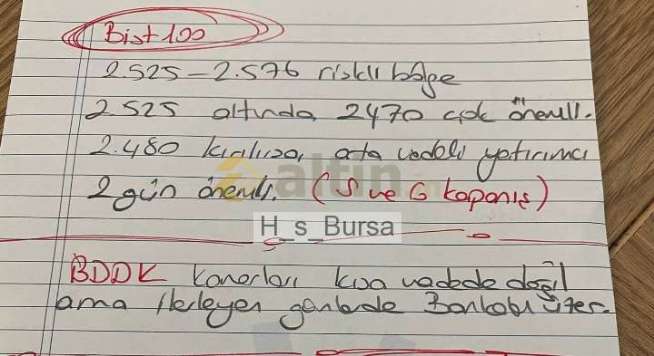 Bist 100
2.525 - 2.576 riskli bölge
2.525 altında 2470 çok önemli.
2.480 kırılırsa, orta vadeli yatırımcı
2 gün önemli. (5 ve 6 kapanış)
altin
H_s_Bursa
BDDK kararları kısa vadede değil
ama ilerleyen günlerde Bankaları üzer.